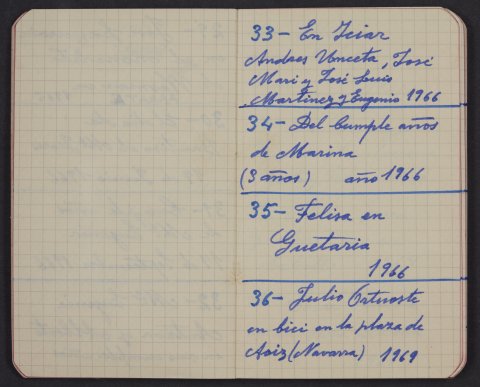 33- En Iciar
Andres Unceta, José
Mari y José Luis
Martinez y Eugenio 1966
34- Del Cumple años
de Marina
(3 años) año 1966
35- Felisa en
Guetaria
1966
36- Julio Ortuoste
en bici en la plaza de
Aoiz (Navarra) 1969